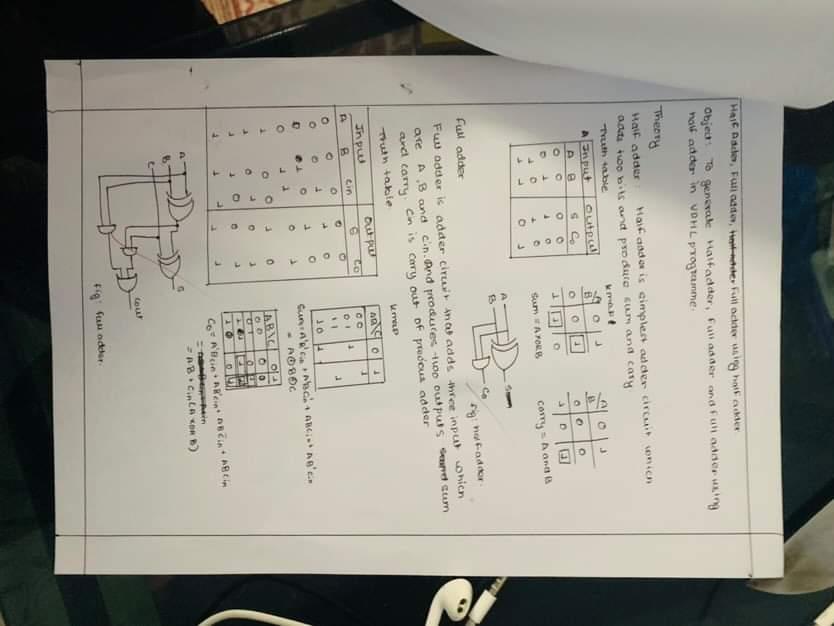 Half Adder, Full adder, Full adder using half adder
Object: To generate Half adder, Full adder and Full adder using
half adder in VDHL programme.
Theory
Half adder: Half adder is simplest adder circuit which
adds two bits and produce sum and cary
Truth table
Input Output
A B S Co
0 0 0 0
0 1 1 0
1 0 1 0
1 1 0 1
kmap
A B 0 1
0 0 1
1 1 0
sum = A xor B
A B 0 1
0 0 0
1 0 1
carry = A and B
A
B
S
Co
fig: half adder.
Full adder
Full adder is adder circuit that adds three input which
are A, B and Cin. And produces two outputs sum
and carry. Cin is carry out of previous adder
Truth table
Input Output
A B Cin S Co
0 0 0 0 0
kmap
AB\C 0 1
00 1
01 1
11 1
10 1
= A⊕B⊕C
AB\C 0 1
00 0 0
01 0 1
11 1 1
10 0 1
= AB + Cin(A XOR B)
A
B
C
S
Cout
fig: full adder.